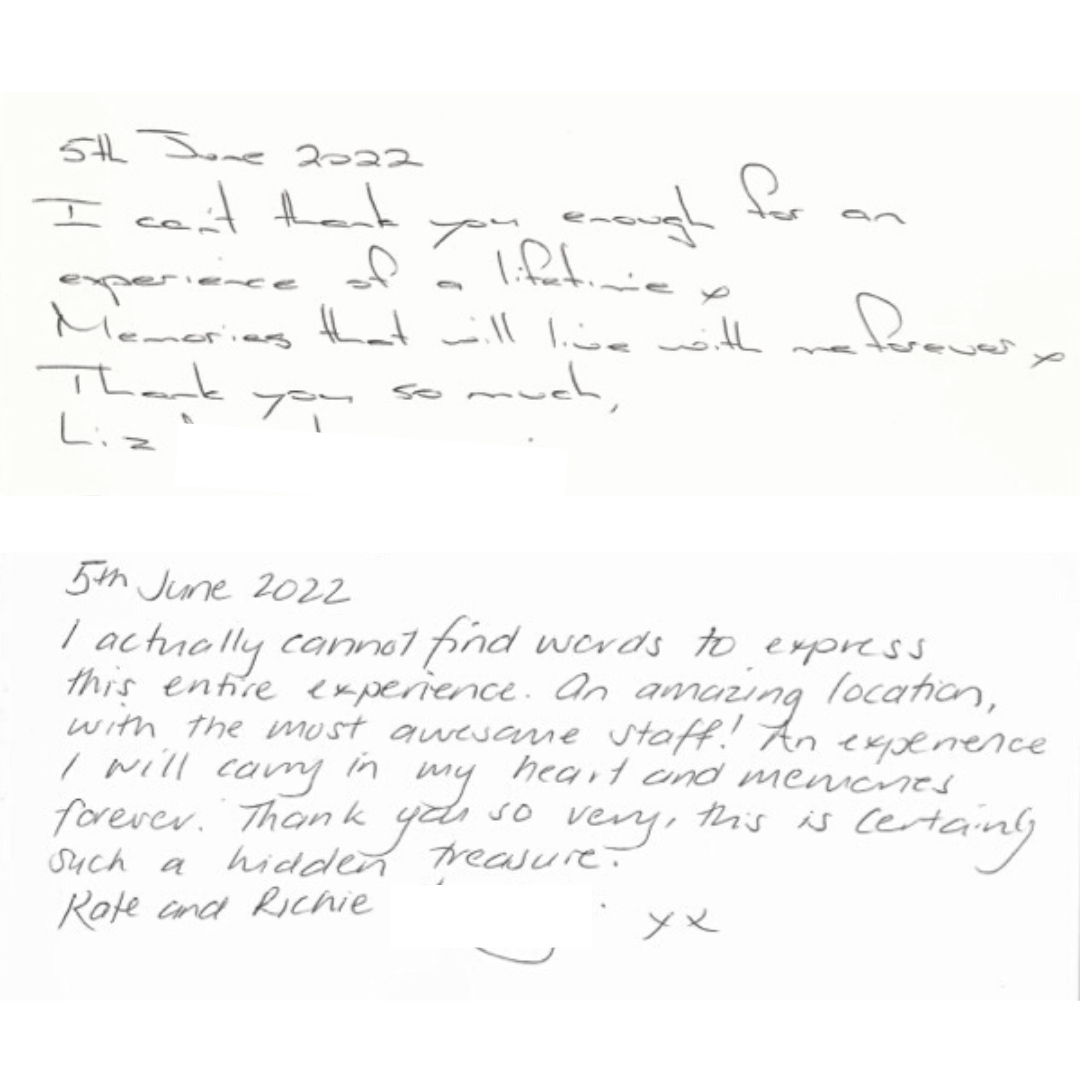 5th June 2022
I can't thank you enough for an
experience of a lifetime x
Memories that will live with me forever x
Thank you so much,
Liz
5th June 2022
I actually cannot find words to express
this entire experience. An amazing location,
with the most awesome staff! An experience
I will carry in my heart and memories
forever. Thank you so very, this is certainly
such a hidden treasure.
Kate and Richie
xx